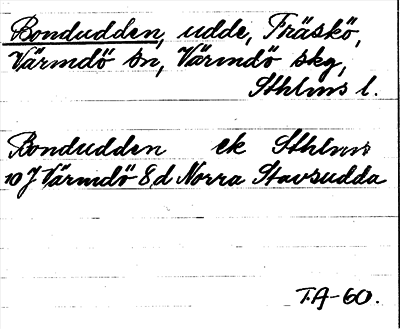 Bondudden, udde, Träskö,
Värmdö sn, Värmdö skg,
Sthlms l.
Bondudden ek Sthlms
10 J Värmdö 8 d Norra Stavsudda
T.A-60.